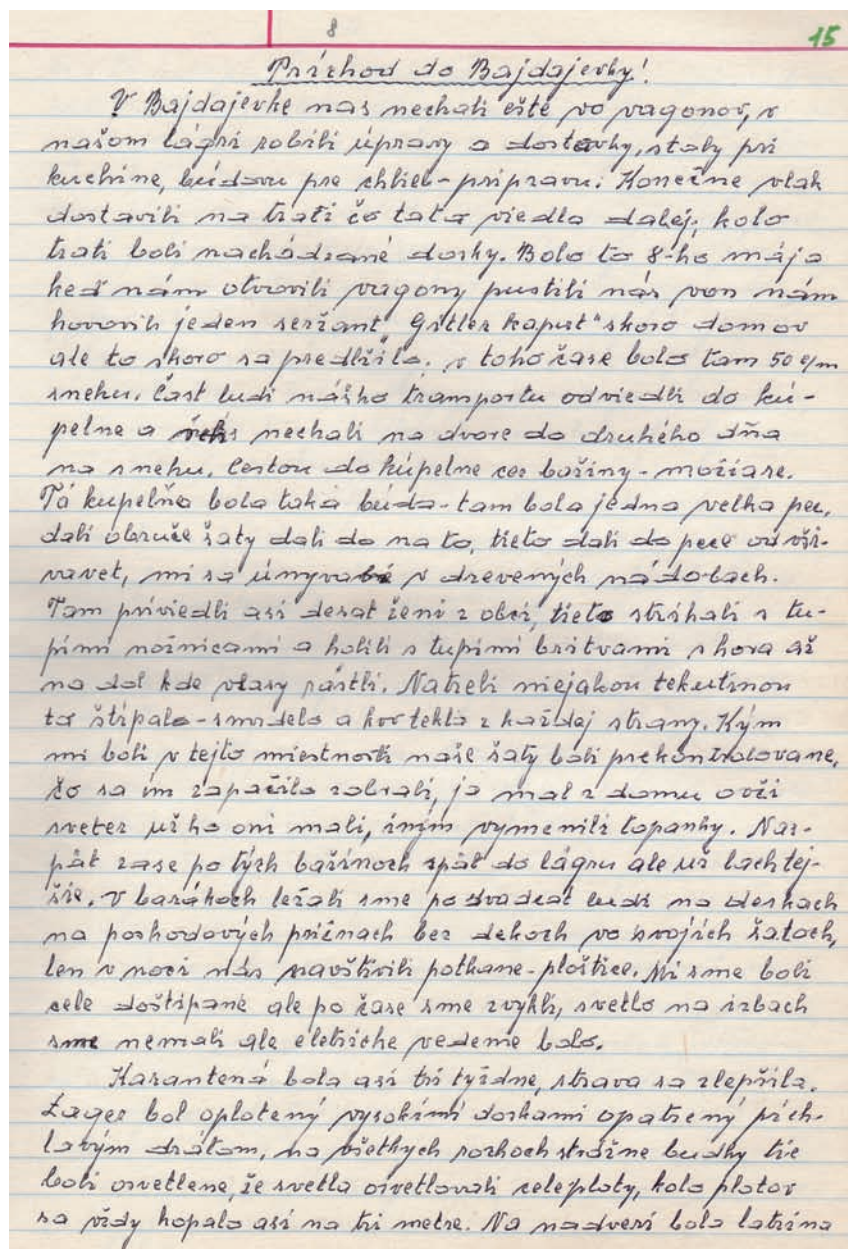 8
15
Príchod do Bajdajevky!
V Bajdajevke nas nechali ešté vo vagonov, v
našom lágri robili úpravy a dostavky, staby pri
kuchine, búdovu pre chlieb-pripravu. Konečne vlak
dostavili na trati čo tato viedla dalej, kolo
trati boli nachádzané dosky. Bolo to 8-ho mája
keď nám otvorili vagony pustili nás von nám
hovorili jeden seržant "Gitler kaput" skoro domov
ale to skoro sa predlžilo, v toho čase bolo tam 50 c/m
snehu. Časť ludi nášho transportu odviedli do kú-
pelne a nechali na dvore do druhého dňa
na snehu. Cestou do kúpelne cez bažiny-močiare.
Tá kupelňa bola taká búda-tam bola jedna velka pec,
dali obruče šaty dali do na to, tieto dali do pece od vši-
vavet, mi sa úmyvali v drevených nádobach.
Tam priviedli asi desat ženi z obci, tieto strihali s tu-
pími nožnicami a holili s tupimi britvami s hora až
na dol kde vlasy rástli. Natreli niejakou tekutinou
to štípalo-smrdelo a krv tekla z každej strany. Kým
mi boli v tejto miestnosti naše šaty boli prekontrolovane,
čo sa im zapačilo zobrali, ja mal z domu ovži
sveter už ho oni mali, iným vymenili topanky. Naz-
pät zase po tých bažinoch späť do lágru ale už lachtej-
šie. V barákoch ležali sme po dvadcat ludi na deskach
na poshodových pričnach bez dekoch vo svojich šatoch,
len v noci nás navštivili potkane-ploštice. Mi sme boli
cele doštipané ale po čase sme zvykli, svetlo na izbach
sme nemali ale eletricke vedenie bolo.
Karantená bola asi tri týždne, strava sa zlepšila.
Lager bol oplotený vysokími doskami opatrený pich-
lavým drátom, na všetkych rozhoch strážne budky tie
boli osvetlene, že svetla osvetlovali cele ploty, kolo plotov
sa vždy kopalo asi na tri metre. Na nadveri bola latrina